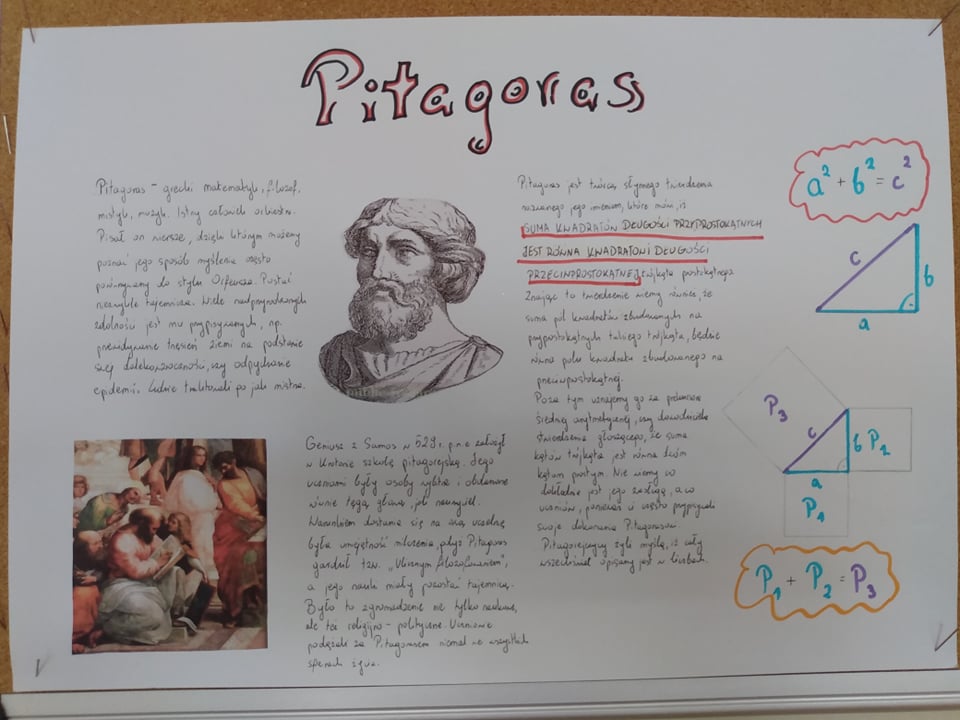 Pitagoras
Pitagoras - grecki matematyk, filozof,
mistyk, muzyk. Istny człowiek orkiestra.
Pisał on wiersze, dzięki którym możemy
poznać jego sposób myślenia często
porównywany do stylu Orfeusza. Postać
niezwykle tajemnicza. Wiele nadprzyrodzonych
zdolności jest mu przypisywanych, np.
przewidywanie trzęsień ziemi na podstawie
swej dalekowzroczności, czy odpychanie
epidemii. Ludzie traktowali go jak mistrza.
Geniusz z Samos w 529 r. p.n.e założył
w Krotonie szkołę pitagorejską. Jego
uczniami były osoby wybitne i obdarzone
równie tęgą głową, jak nauczyciel.
Warunkiem dostania się na ową uczelnię
była umiejętność milczenia, gdyż Pitagoras
gardził tzw. „ filozofowaniem",
a jego nauki miały pozostać tajemnicą.
Było to zgromadzenie nie tylko naukowe,
ale też religijno - polityczne. Uczniowie
podążali za Pitagorasem niemal we wszystkich
sferach życia.
Pitagoras jest twórcą słynnego twierdzenia
nazwanego jego imieniem, które mówi, iż
SUMA KWADRATÓW DŁUGOŚCI PRZYPROSTOKĄTNYCH
JEST RÓWNA KWADRATOWI DŁUGOŚCI
PRZECIWPROSTOKĄTNEJ trójkąta prostokątnego.
Znając to twierdzenie wiemy również, że
suma pól kwadratów zbudowanych na
przyprostokątnych takiego trójkąta, będzie
równa polu kwadratu zbudowanego na
przeciwprostokątnej.
Poza tym uznajemy go za
średniej arytmetycznej, czy
twierdzenia głoszącego, że suma
kątów trójkąta jest równa dwóm
kątom prostym. Nie wiemy co
dokładnie jest jego zasługą, a co
uczniów, ponieważ ci często przypisywali
swoje dokonania Pitagorasowi.
Pitagorejczycy żyli myślą, iż cały
wszechświat opisany jest w liczbach.
a² + b² = c²
c
b
a
P₃
c
b P₂
a
P₁
P₁ + P₂ = P₃